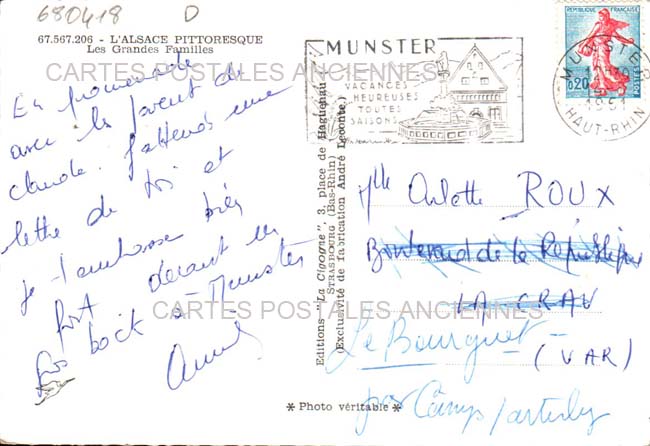 680418 D
67.567.206 - L'ALSACE PITTORESQUE
Les Grandes Familles
CARTES POSTALES ANCIENNES
En promenade
avec les parents de
claude. J'attends une
lettre de toi et
je t'embrasse bien
fort devant un
bock à Munster
CARTES POSTALES ANCIENNES
Editions "La Cigogne", 3, place de Haguenau
STRASBOURG (Bas-Rhin)
(Exclusivité de fabrication André Leconte)
MUNSTER
VACANCES
HEUREUSES
TOUTES
SAISONS
REPUBLIQUE FRANÇAISE
0,20
POSTES
MUNSTER
HAUT-RHIN
Mlle Arlette ROUX
Boulevard de la République
LA CRAU
Le Bourguet
(VAR)
par Camps/artuby
* Photo véritable *